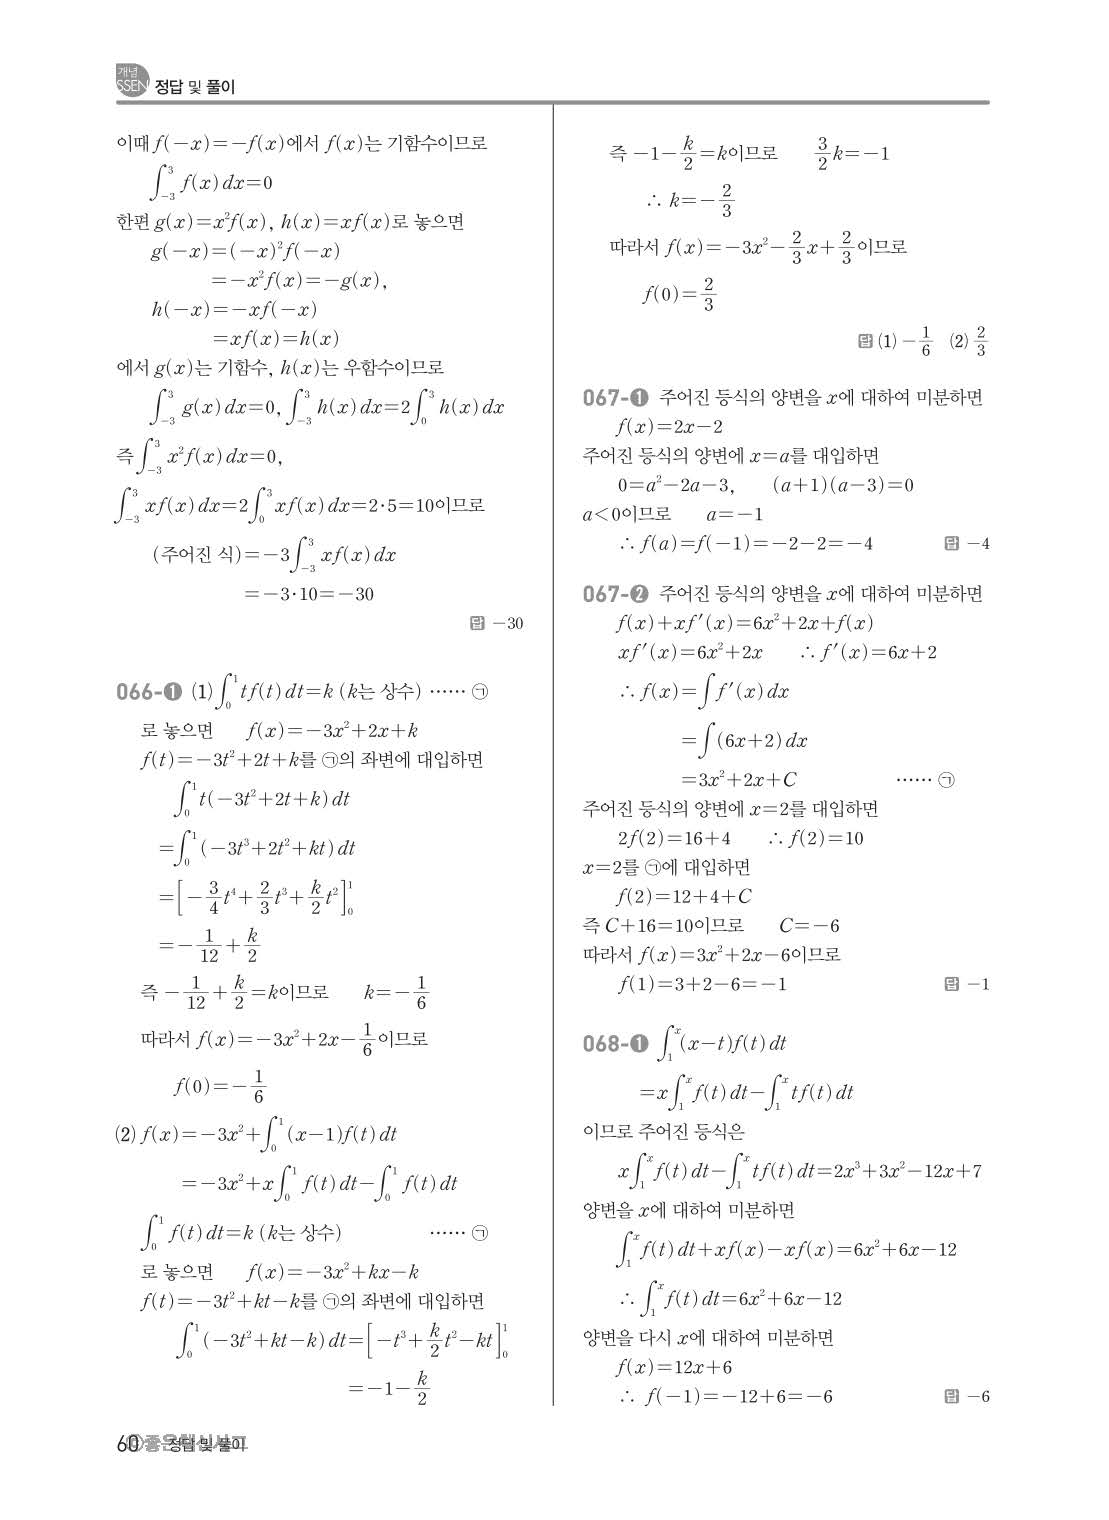 개념
SSEN 정답 및 풀이
이때 f(-x)=-f(x)에서 f(x)는 기함수이므로
∫_{-3}^{3} f(x)dx=0
한편 g(x)=x²f(x), h(x)=xf(x)로 놓으면
g(-x)=(-x)²f(-x)
=-x²f(x)=-g(x),
h(-x)=-xf(-x)
=xf(x)=h(x)
에서 g(x)는 기함수, h(x)는 우함수이므로
∫_{-3}^{3} g(x)dx=0, ∫_{-3}^{3} h(x)dx=2∫_{0}^{3} h(x)dx
즉 ∫_{-3}^{3} x²f(x)dx=0,
∫_{-3}^{3} xf(x)dx=2∫_{0}^{3} xf(x)dx=2·5=10이므로
(주어진 식)=-3∫_{-3}^{3} xf(x)dx
=-3·10=-30
답 -30
066-❶ ⑴ ∫_{0}^{1} tf(t)dt=k (k는 상수) …… ㉠
로 놓으면 f(x)=-3x²+2x+k
f(t)=-3t²+2t+k를 ㉠의 좌변에 대입하면
∫_{0}^{1} t(-3t²+2t+k)dt
=∫_{0}^{1} (-3t³+2t²+kt)dt
=[-3/4 t⁴+2/3 t³+k/2 t²]_{0}^{1}
=-1/12+k/2
즉 -1/12+k/2=k이므로 k=-1/6
따라서 f(x)=-3x²+2x-1/6이므로
f(0)=-1/6
⑵ f(x)=-3x²+∫_{0}^{1} (x-1)f(t)dt
=-3x²+x∫_{0}^{1} f(t)dt-∫_{0}^{1} f(t)dt
∫_{0}^{1} f(t)dt=k (k는 상수) …… ㉠
로 놓으면 f(x)=-3x²+kx-k
f(t)=-3t²+kt-k를 ㉠의 좌변에 대입하면
∫_{0}^{1} (-3t²+kt-k)dt=[-t³+k/2 t²-kt]_{0}^{1}
=-1-k/2
즉 -1-k/2=k이므로 3/2 k=-1
∴ k=-2/3
따라서 f(x)=-3x²-2/3 x+2/3이므로
f(0)=2/3
답 ⑴ -1/6 ⑵ 2/3
067-❶ 주어진 등식의 양변을 x에 대하여 미분하면
f(x)=2x-2
주어진 등식의 양변에 x=a를 대입하면
0=a²-2a-3, (a+1)(a-3)=0
a<0이므로 a=-1
∴ f(a)=f(-1)=-2-2=-4 답 -4
067-❷ 주어진 등식의 양변을 x에 대하여 미분하면
f(x)+xf′(x)=6x²+2x+f(x)
xf′(x)=6x²+2x ∴ f′(x)=6x+2
∴ f(x)=∫f′(x)dx
=∫(6x+2)dx
=3x²+2x+C …… ㉠
주어진 등식의 양변에 x=2를 대입하면
2f(2)=16+4 ∴ f(2)=10
x=2를 ㉠에 대입하면
f(2)=12+4+C
즉 C+16=10이므로 C=-6
따라서 f(x)=3x²+2x-6이므로
f(1)=3+2-6=-1 답 -1
068-❶ ∫_{1}^{x} (x-t)f(t)dt
=x∫_{1}^{x} f(t)dt-∫_{1}^{x} tf(t)dt
이므로 주어진 등식은
x∫_{1}^{x} f(t)dt-∫_{1}^{x} tf(t)dt=2x³+3x²-12x+7
양변을 x에 대하여 미분하면
∫_{1}^{x} f(t)dt+xf(x)-xf(x)=6x²+6x-12
∴ ∫_{1}^{x} f(t)dt=6x²+6x-12
양변을 다시 x에 대하여 미분하면
f(x)=12x+6
∴ f(-1)=-12+6=-6 답 -6
60 정답 및 풀이